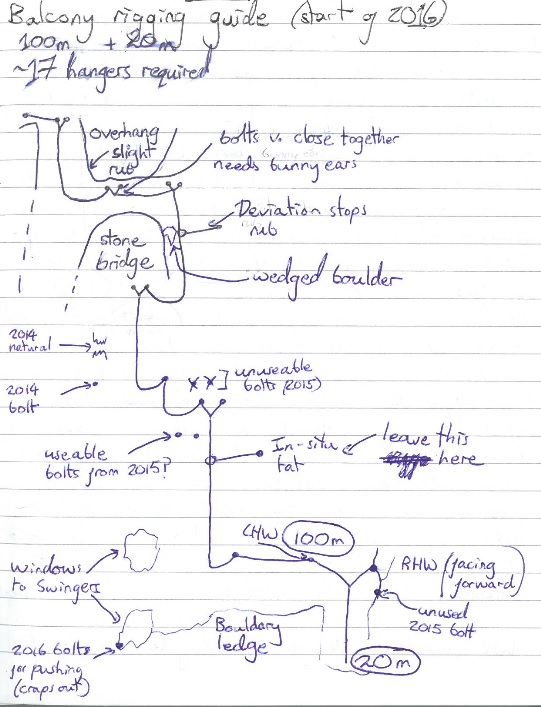 Balcony rigging guide (start of 2016)
100m + 20m
~17 hangers required
overhang
slight
rub
bolts v. close together
needs bunny ears
Deviation stops
rub
stone
bridge
wedged boulder
2014
natural
unuseable
bolts (2015)
2014
bolt
useable
bolts from 2015?
In-situ
tat
leave this
here
LHW 100m
RHW (facing
forward)
windows
to Swingers
unused
2015 bolt
Bouldary
ledge
2016 bolts
for pushing
(craps out)
20m